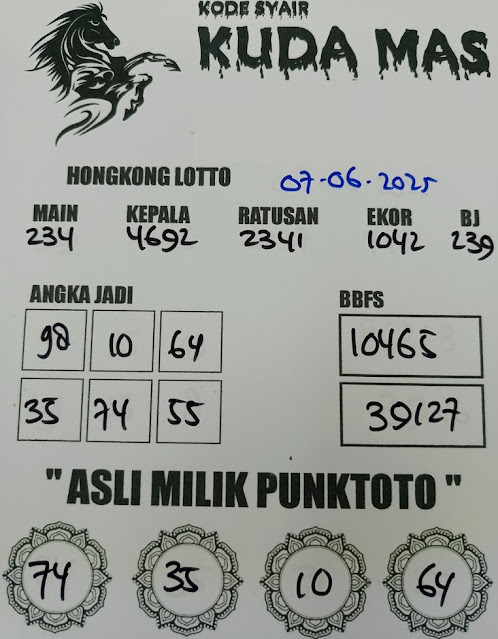 KODE SYAIR
KUDA MAS
HONGKONG LOTTO 07-06-2025
MAIN KEPALA RATUSAN EKOR BJ
234 4692 2341 1042 239
ANGKA JADI BBFS
98 10 64 10465
35 74 55 39127
" ASLI MILIK PUNKTOTO "
74 35 10 64